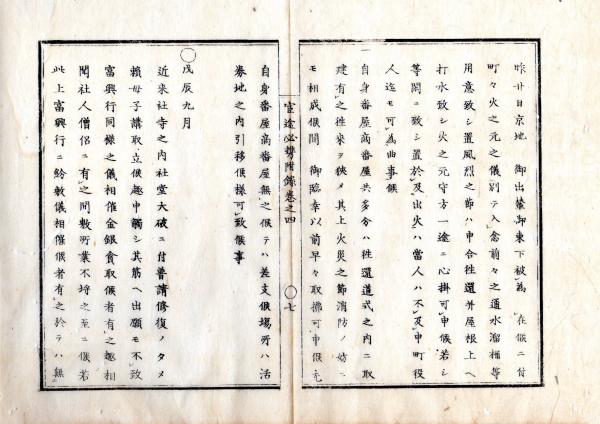 昨廿日京地　御出輦御東下被爲　在候ニ付
町々火之元之儀別テ入念前々之通水溜桶等
用意致シ置風烈之節ハ申合往還幷屋根上ヘ
打水致シ火之元守方一途ニ心掛可申候若シ
等閑ニ致シ置於及出火ハ當人ハ不及申町役
人迄モ可爲曲事候
一自身番屋商番屋共多分ハ往還道式之内ニ取
建有之往來ヲ狹メ其上火災之節消防ノ妨ニ
モ相成候間　御臨幸以前早々取拂可申候尤
官途必携附錄卷之四
○七
自身番屋商番屋無之候テハ差支候場所ハ沽
券地之内引移候樣可致候事
○戊辰九月
近來社寺之内社堂大破ニ付普請修復ノタメ
賴母子講取立候趣申觸シ其筋ヘ出願モ不致
富興行同樣之儀相催金銀貪取候者有之趣相
聞社人僧侶ニ有之間敷所業不埒之至ニ候若
此上富興行ニ紛敷儀相催候者有之於テハ無